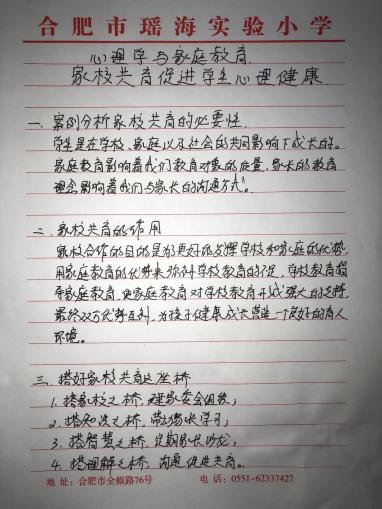 合肥市瑶海实验小学
心理学与家庭教育
家校共育促进学生心理健康
一、案例分析家校共育的必要性
学生是在学校、家庭以及社会的共同影响下成长的。
家庭教育影响着我们教育对象的质量,家长的教育
理念影响着我们与家长的沟通方式。
二、家校共育的作用
家校合作的目的是为更好的发挥学校和家庭的优势,
用家庭教育的优势来弥补学校教育的不足,学校教育指
导家庭教育,使家庭教育对学校教育形成强大的支持,
最终双方优势互利,为孩子健康成长营造一个良好的育人
环境。
三、搭好家校共育这座桥
1. 搭家校之桥,建家委会组织;
2. 搭知识之桥,带动家长学习;
3. 搭智慧之桥,定期家长沙龙;
4. 搭理解之桥,沟通促进共育。
地址:合肥市全椒路76号 电话:0551-62337427